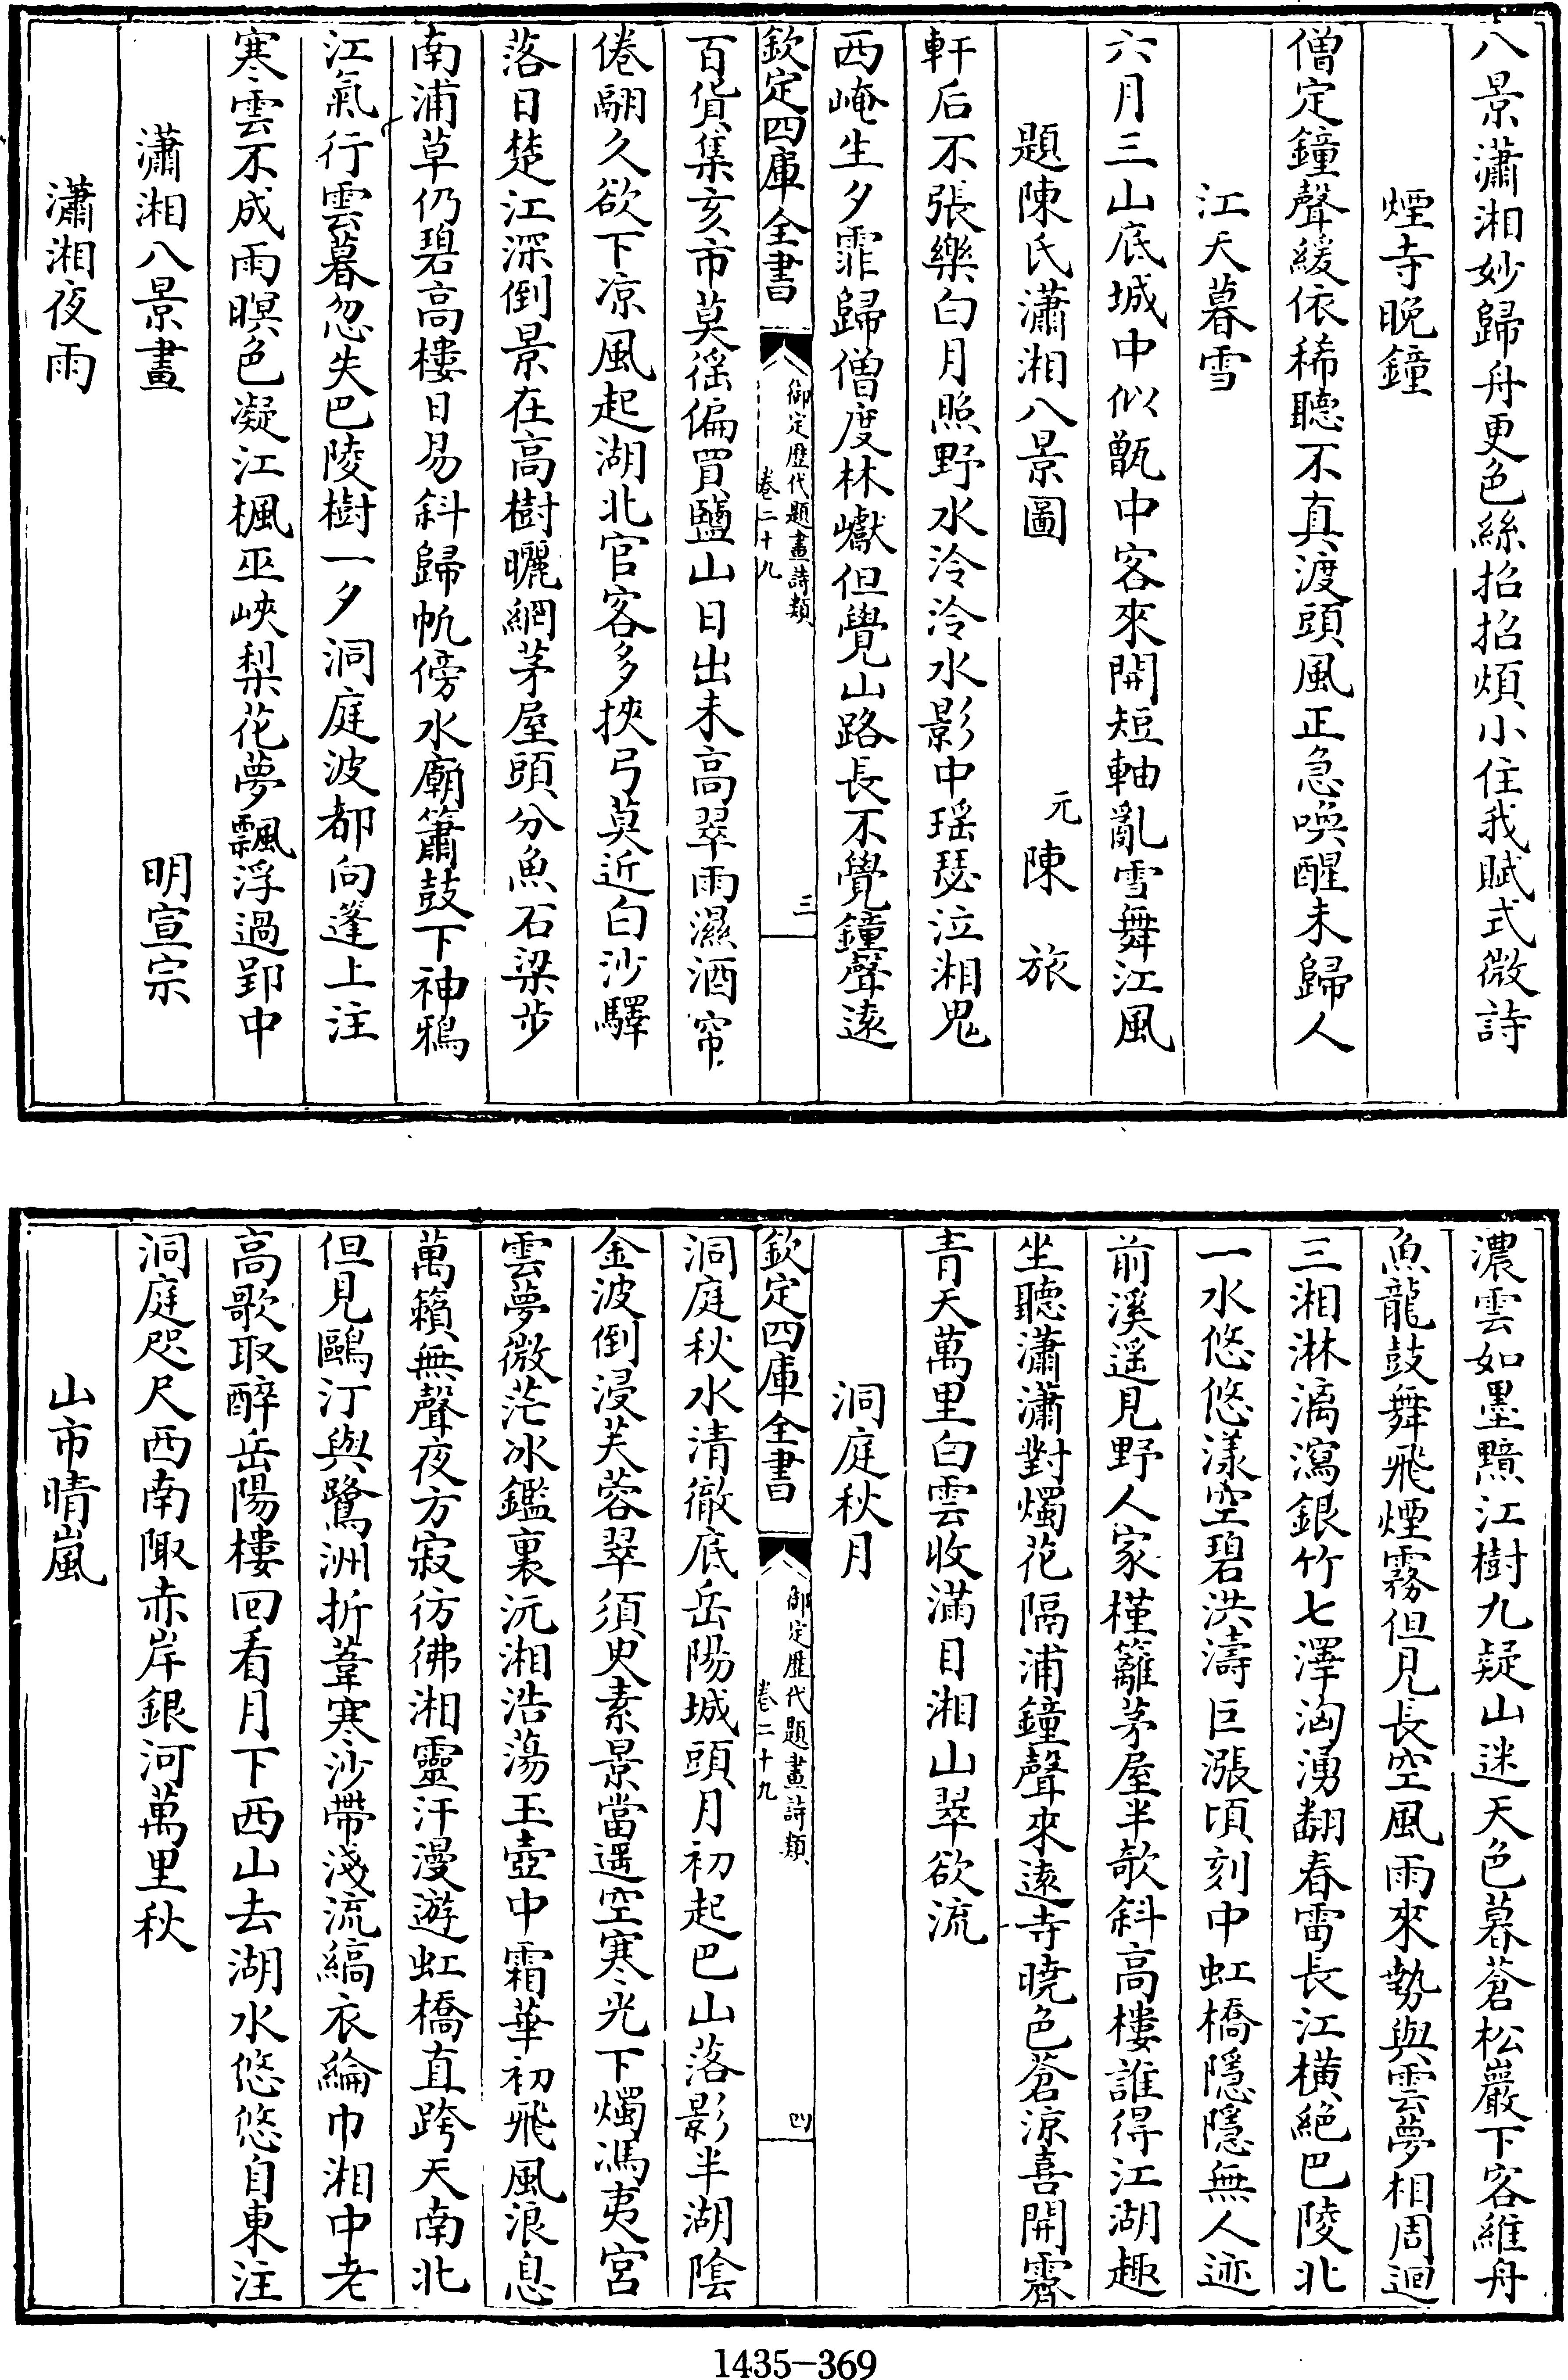 八景瀟湘妙歸舟更色絲招招煩小住我賦式微詩
煙寺晚鐘
僧定鐘聲緩依稀聽不真渡頭風正急喚醒未歸人
江天暮雪
六月三山底城中似甑中客來開短軸亂雪舞江風
題陳氏瀟湘八景圖
元陳旅
軒后不張樂白月照野水泠泠水影中瑶瑟泣湘鬼
西崦生夕霏歸僧度林巘但覺山路長不覺鐘聲遠
欽定四庫全書
御定歴代題畫詩類
卷二十九
三
百貨集亥市莫徭偏買鹽山日出未高翠雨濕酒帘
倦翮久欲下凉風起湖北官客多挾弓莫近白沙驛
落日楚江深倒景在高樹曬網茅屋頭分魚石梁步
南浦草仍碧高樓日易斜歸帆傍水廟簫鼓下神鴉
江氣行雲暮忽失巴陵樹一夕洞庭波都向篷上注
寒雲不成雨暝色凝江楓巫峽梨花夢飄浮過郢中
瀟湘八景畫
明宣宗
瀟湘夜雨
濃雲如墨黯江樹九疑山迷天色暮蒼松巖下客維舟
魚龍鼓舞飛煙霧但見長空風雨來勢與雲夢相周迴
三湘淋漓瀉銀竹七澤洶湧翻春雷長江橫絶巴陵北
一水悠悠漾空碧洪濤巨漲頃刻中虹橋隱隱無人迹
前溪遥見野人家槿籬茅屋半欹斜高樓誰得江湖趣
坐聽瀟瀟對燭花隔浦鐘聲來遠寺曉色蒼涼喜開霽
青天萬里白雲收滿目湘山翠欲流
洞庭秋月
欽定四庫全書
御定歴代題畫詩類
卷二十九
四
洞庭秋水清徹底岳陽城頭月初起巴山落影半湖陰
金波倒浸芙蓉翠須臾素景當遥空寒光下燭馮夷宮
雲夢微茫冰鑑裏沅湘浩蕩玉壺中霜華初飛風浪息
萬籟無聲夜方寂彷彿湘靈汗漫遊虹橋直跨天南北
但見鷗汀與鷺洲折葦寒沙帶淺流縞衣綸巾湘中老
高歌取醉岳陽樓回看月下西山去湖水悠悠自東注
洞庭咫尺西南陬赤岸銀河萬里秋
山市晴嵐
1435-369